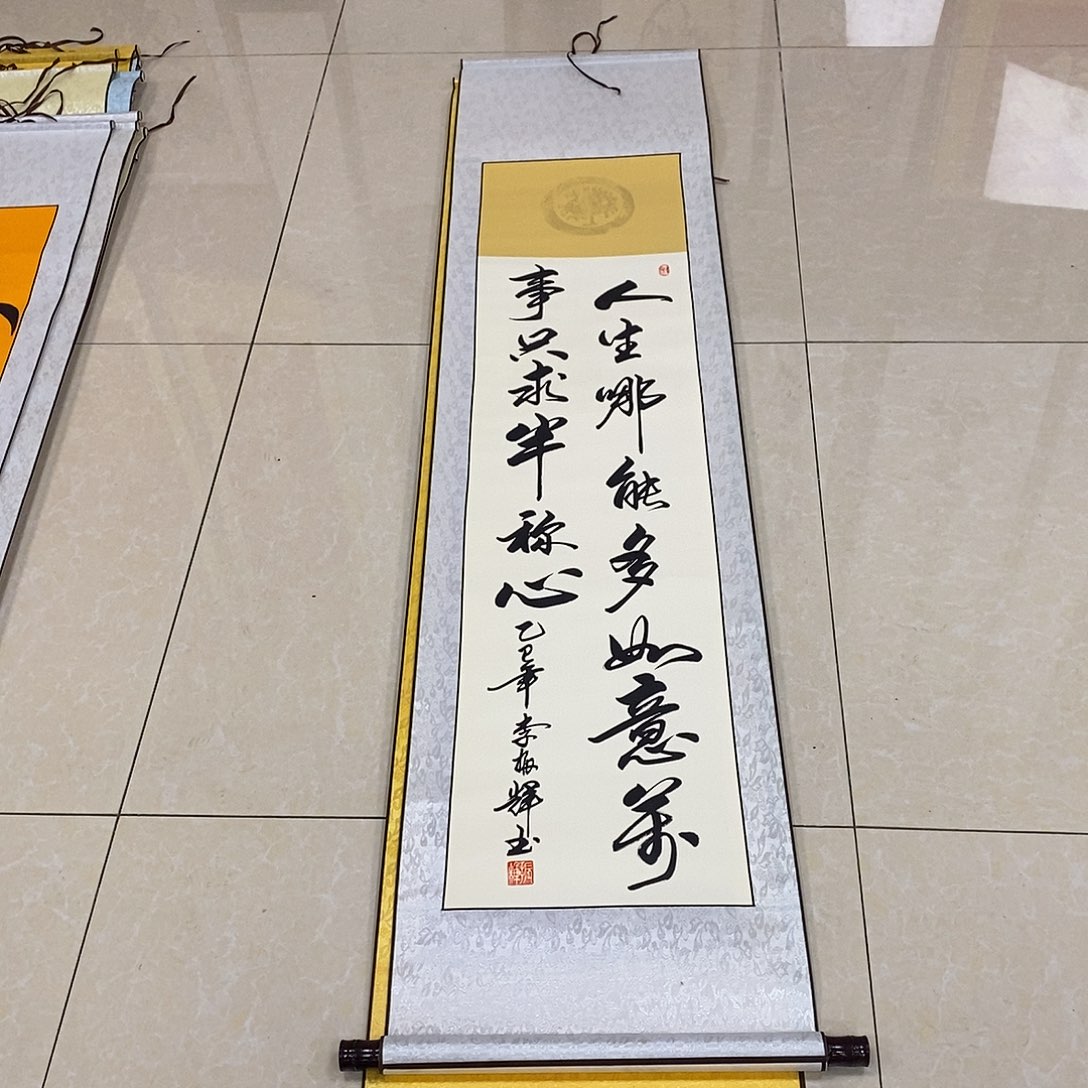 人生哪能多如意萬
事只求半称心
乙巳年李振輝书